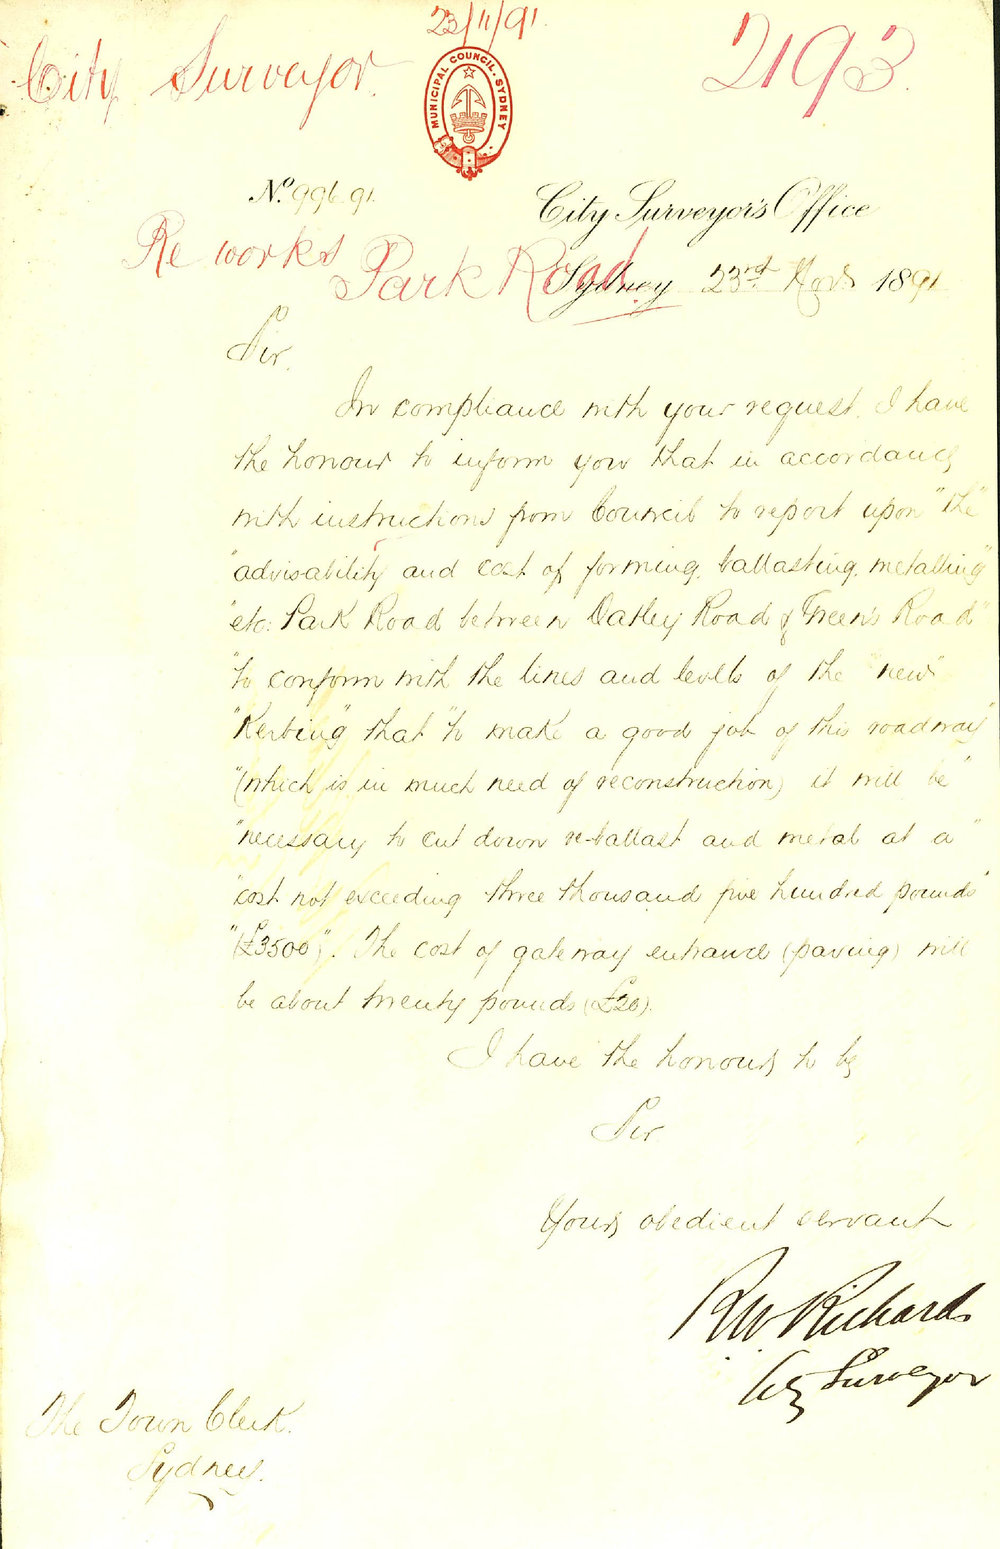 23/11/91
City Surveyor.
2193.
MUNICIPAL COUNCIL. SYDNEY
No. 996.91.
City Surveyor's Office
Re works Park Road
Sydney 23rd Novr 1891
Sir.
In compliance with your request. I have
the honour to inform you that in accordance
with instructions from Council to report upon "the"
"advisability and cost of forming, ballasting, metalling"
"etc: Park Road between Oatley Road & Green's Road"
"to conform with the lines and levels of the "new"
"Kerbing" that "to make a good job of this roadway"
"(which is in much need of reconstruction) it will be"
"necessary to cut down re-ballast and metal at a"
"cost not exceeding three thousand five hundred pounds"
"(£3500)". The cost of gateway entrance (paving) will
be about twenty pounds (£20).
I have the honour to be
Sir
Your obedient servant
RW Richards
City Surveyor
The Town Clerk.
Sydney.